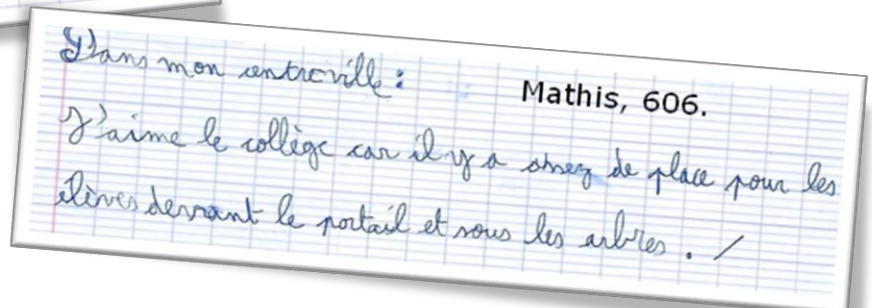 Dans mon centreville :
Mathis, 606.
J'aime le collège car il y a assez de place pour les
élèves devant le portail et sous les arbres . /